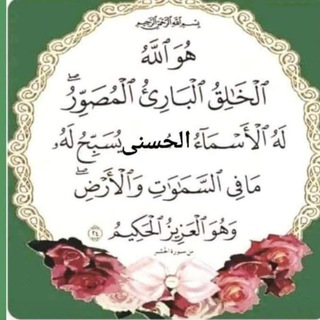 بِسْمِ اللَّهِ الرَّحْمَٰنِ الرَّحِيمِ
هُوَ ٱللَّهُ
ٱلْخَٰلِقُ ٱلْبَارِئُ ٱلْمُصَوِّرُۖ
لَهُ ٱلْأَسْمَآءُ الحُسنى يُسَبِّحُ لَهُۥ
مَا فِي ٱلسَّمَٰوَٰتِ وَٱلْأَرْضِۖ
وَهُوَ ٱلْعَزِيزُ ٱلْحَكِيمُ ٢٤
من سورة الحشر